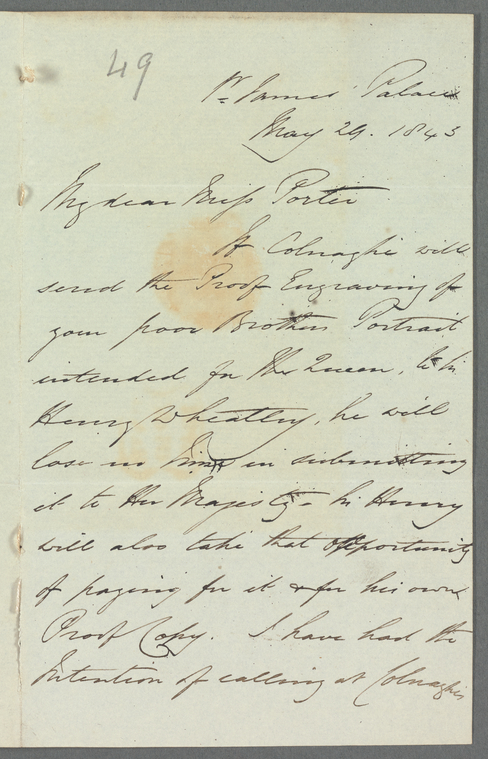 49
St James' Palace
May 29. 1843
My dear Miss Porter
If Colnaghi will
send the Proof Engraving of
your poor Brothers Portrait
intended for the Queen, to Sir
Henry Wheatley, he will
lose no time in submitting
it to Her Majesty - Sir Henry
will also take that opportunity
of paying for it & for his own
Proof Copy. I have had the
Intention of calling at Colnaghis